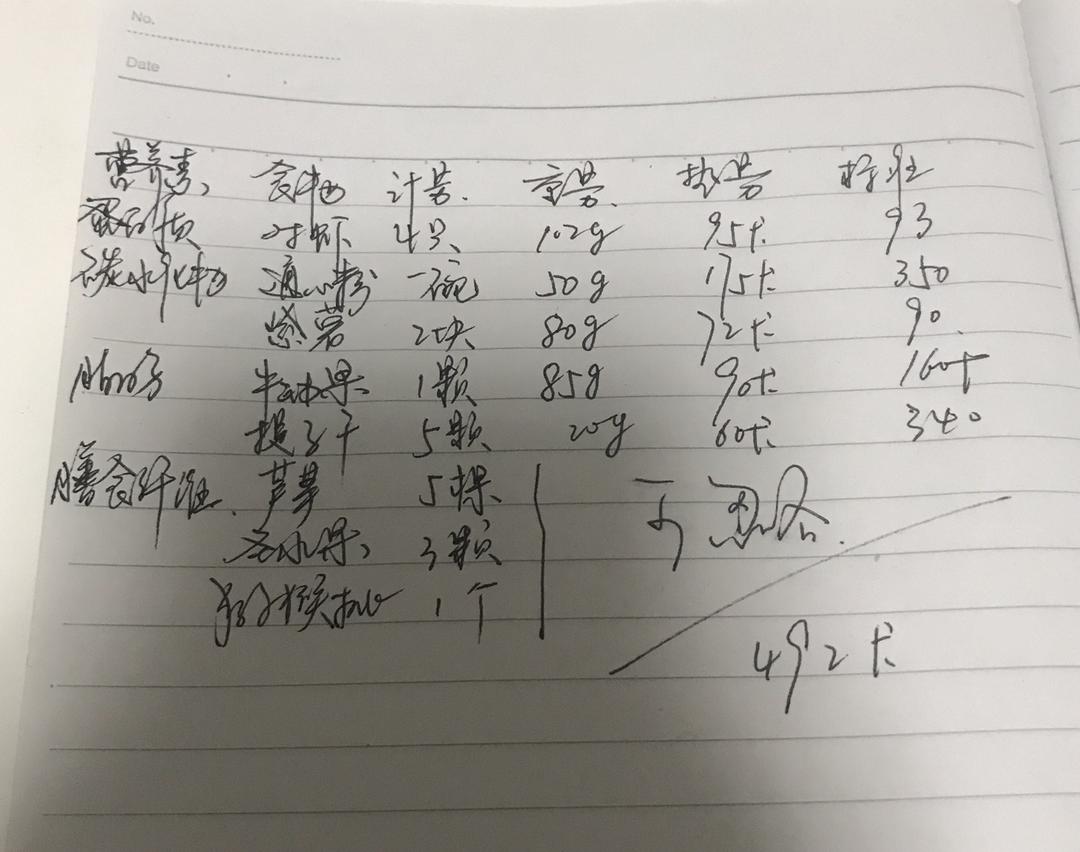 No.
Date
营养素、 食物 计量. 重量. 热量 标准
蛋白质 对虾 4只 102g 95卡 93
碳水化物 通心粉 一碗 50g 175卡 350
紫薯 2块 80g 72卡 90.
脂肪 牛油果 1颗 85g 90卡 160卡
提子干 5颗 20g 60卡 340
膳食纤维. 芦笋 5棵
圣水果 3颗 可忽略.
猕猴桃 1个
492卡